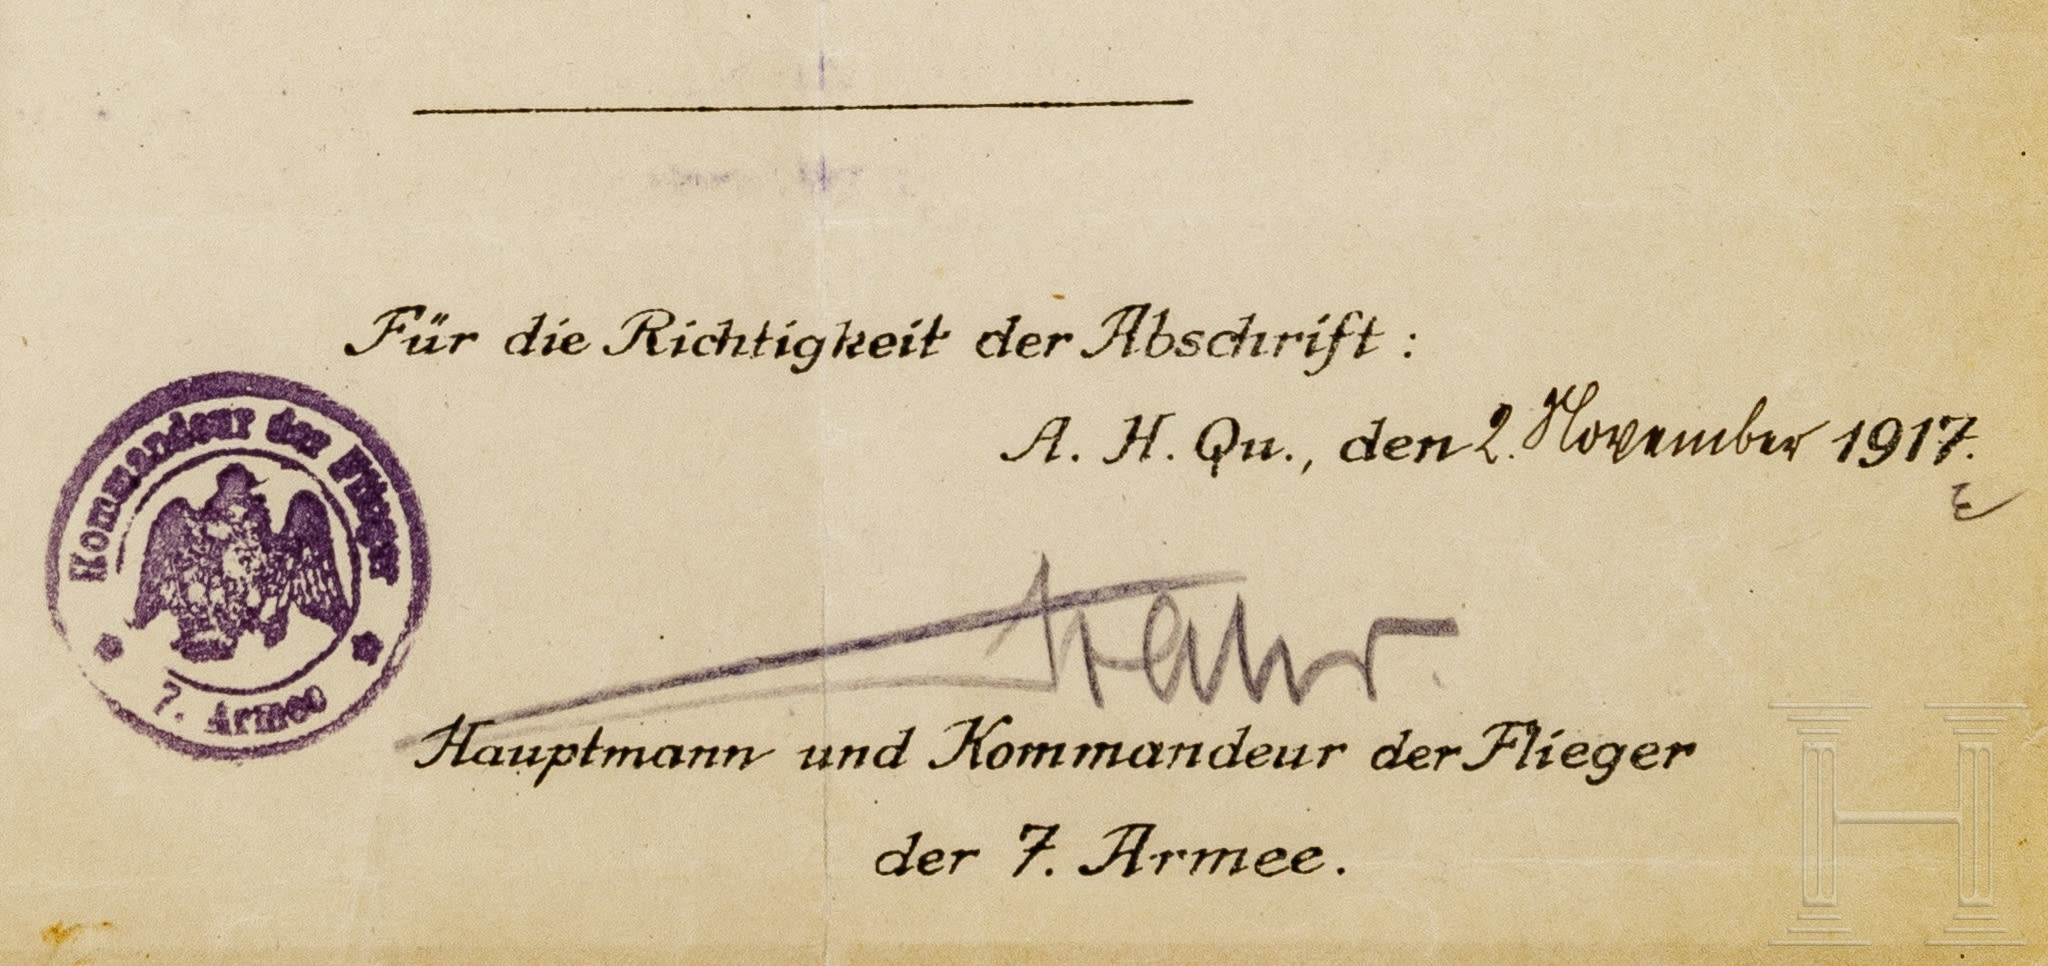 Für die Richtigkeit der Abschrift:
A. H. Qu., den 2. November 1917.
Kommandeur der Flieger
7. Armee
Hauptmann und Kommandeur der Flieger
der 7. Armee.